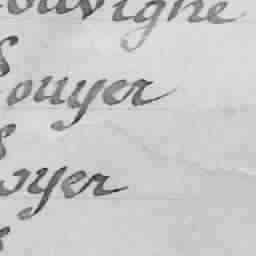 ouvigne
ouyer
oyer